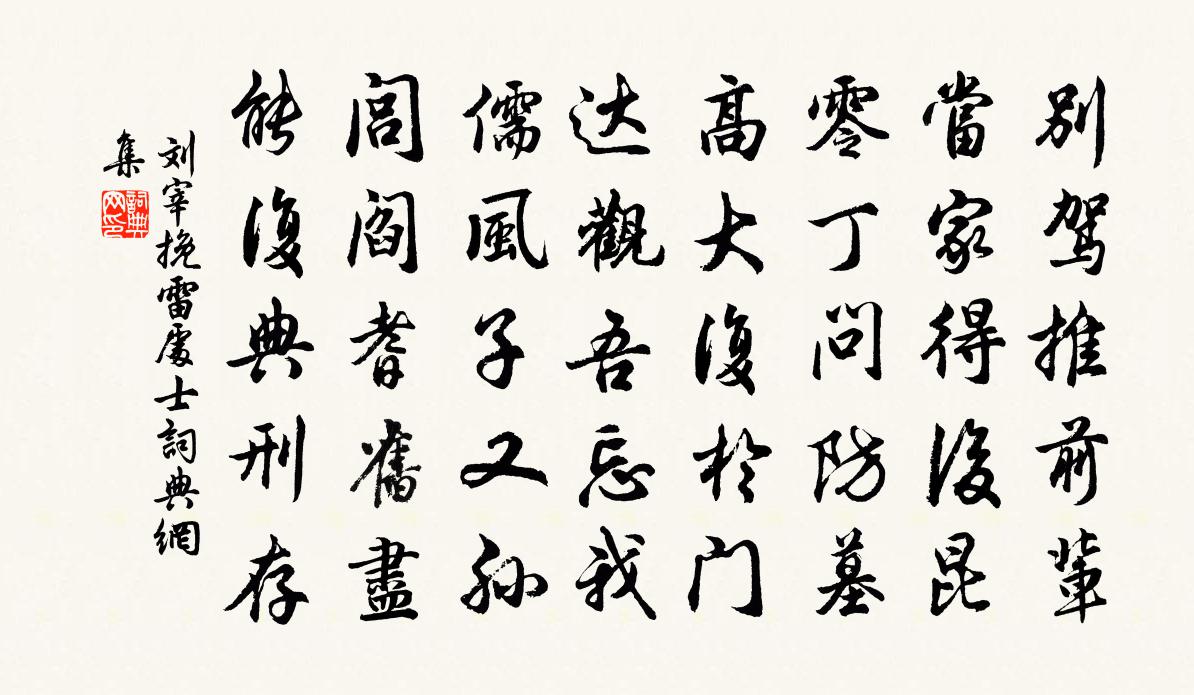 别駕推前輩
當家得後昆
零丁問防墓
高大復於门
达觀吾忘我
儒風子又孙
閭閻耆舊盡
能復典刑存
刘宰挽雷處士詞典網
集
詞典网印